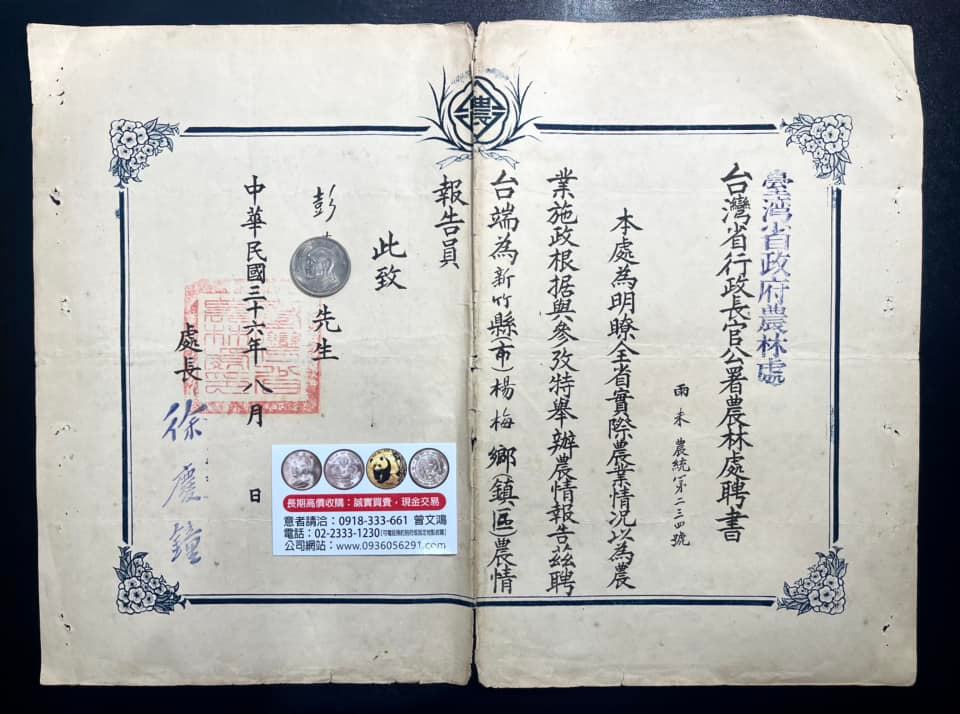 農
臺灣省政府農林處
台灣省行政長官公署農林處聘書
農統第二三四號
本處為明瞭全省實際農業情况以為農
業施政根据與參攷特舉辦農情報告茲聘
台端為新竹縣(市)楊梅鄉(鎮區)農情
報告員
此致
彭
先生
中華民國三十六年八月 日
處長 徐慶鐘
長期高價收購：誠實買賣，現金交易
意者請洽：0918-333-661 曾文鴻
電話：02-2333-1230
公司網站：www.0936056291.com